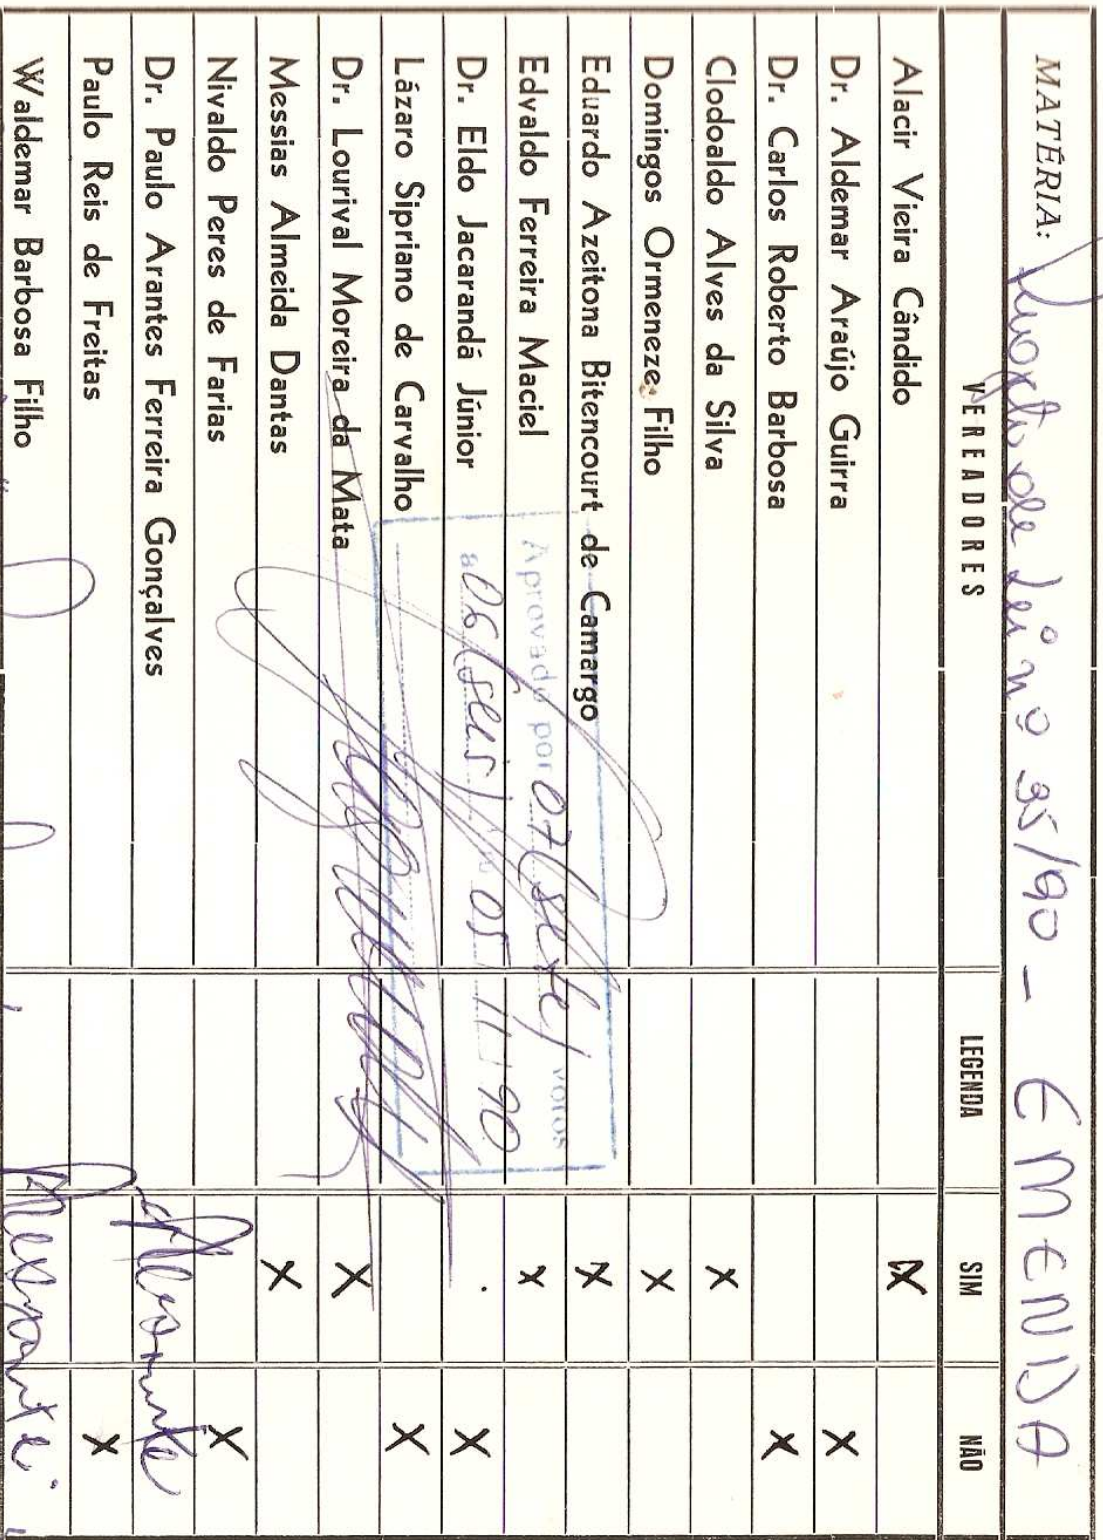 MATÉRIA: de Lei nº 95/90 - EMENDA
VEREADORES LEGENDA SIM NÃO
Alacir Vieira Cândido X
Dr. Aldemar Araújo Guirra X
Dr. Carlos Roberto Barbosa X
Clodoaldo Alves da Silva X
Domingos Ormeneze Filho X
Eduardo Azeitona Bitencourt de Camargo X
Edvaldo Ferreira Maciel X
Dr. Eldo Jacarandá Júnior X
Lázaro Sipriano de Carvalho X
Dr. Lourival Moreira da Mata X
Messias Almeida Dantas X
Nivaldo Peres de Farias X
Dr. Paulo Arantes Ferreira Gonçalves
Paulo Reis de Freitas X
Waldemar Barbosa Filho
Aprovado por 07 (sete) votos
a 06 (seis) 05 11 90